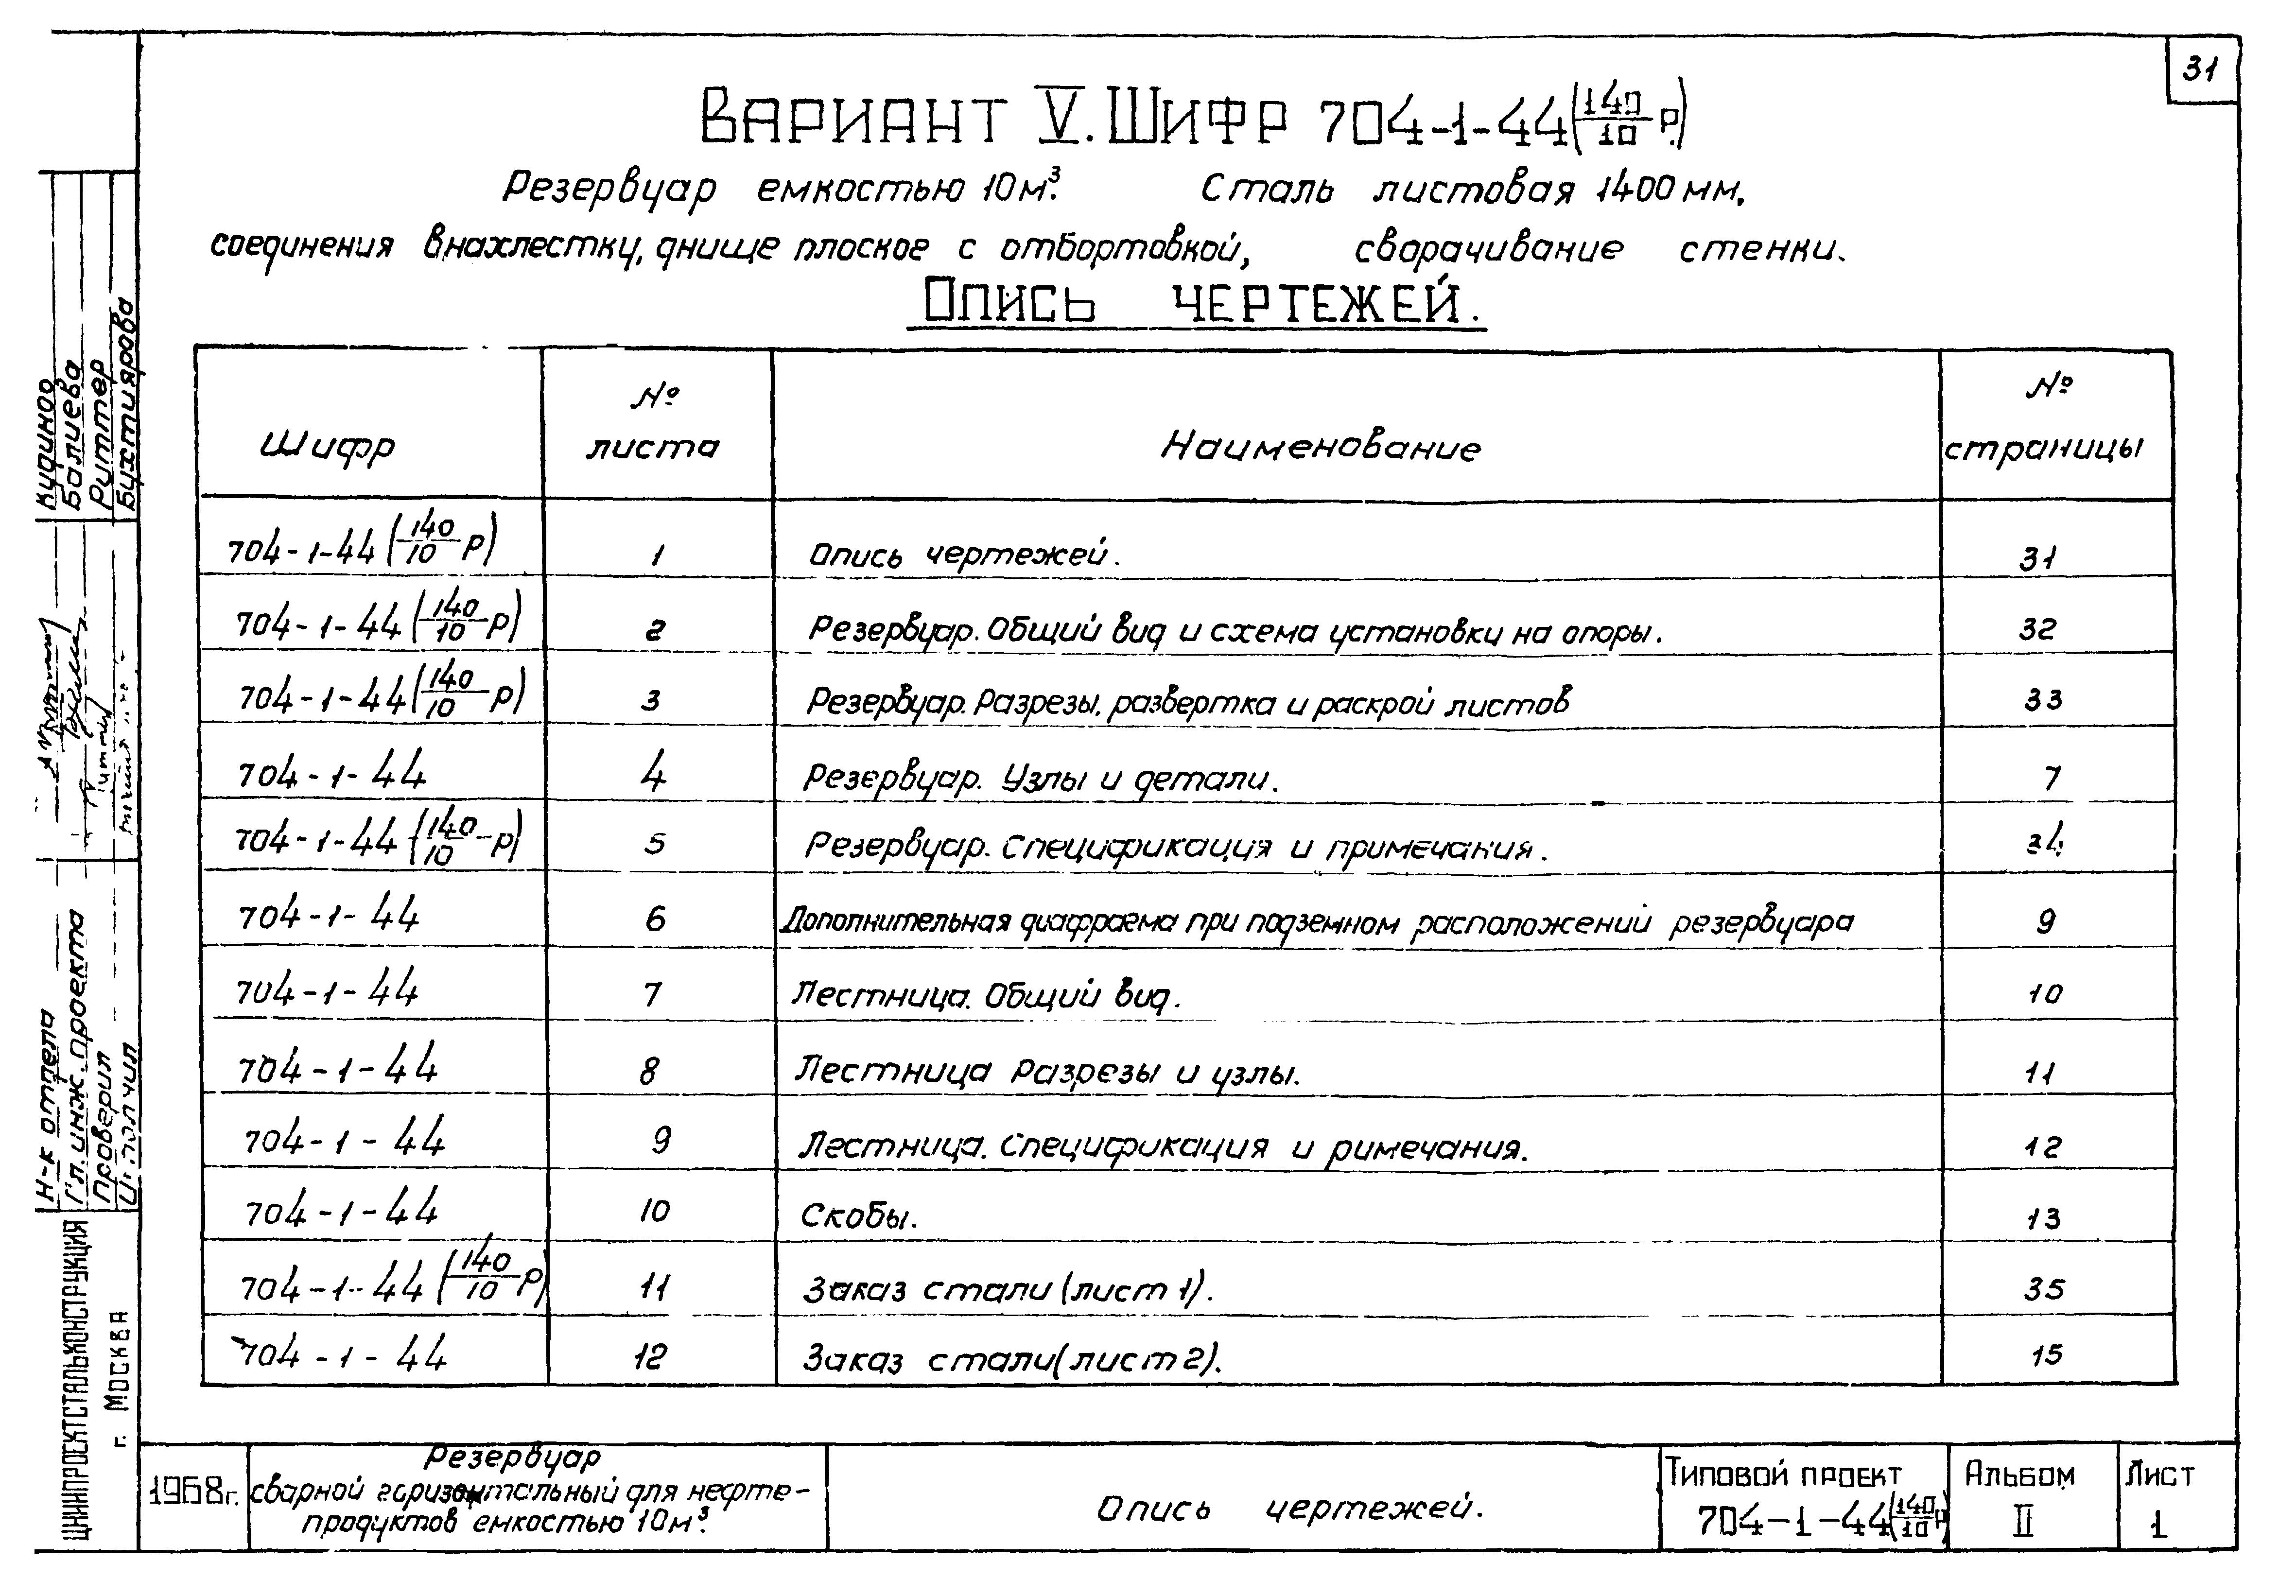 31
ВАРИАНТ V. ШИФР 704-1-44(140/10 Р.)
Резервуар емкостью 10м³. Сталь листовая 1400мм,
соединения внахлестку, днище плоское с отбортовкой, сворачивание стенки.
ОПИСЬ ЧЕРТЕЖЕЙ.
Шифр № листа Наименование № страницы
704-1-44(140/10 Р) 1 Опись чертежей. 31
704-1-44(140/10 Р) 2 Резервуар. Общий вид и схема установки на опоры. 32
704-1-44(140/10 Р) 3 Резервуар. Разрезы, развертка и раскрой листов 33
704-1-44 4 Резервуар. Узлы и детали. 7
704-1-44(140/10 Р) 5 Резервуар. Спецификация и примечания. 34
704-1-44 6 Дополнительная диафрагма при подземном расположении резервуара 9
704-1-44 7 Лестница. Общий вид. 10
704-1-44 8 Лестница Разрезы и узлы. 11
704-1-44 9 Лестница. Спецификация и римечания. 12
704-1-44 10 Скобы. 13
704-1-44(140/10 Р) 11 Заказ стали (лист 1). 35
704-1-44 12 Заказ стали (лист 2). 15
Кудинов
Балиева
Риттер
Бухтиярова
Н-к отдела
Гл. инж. проекта
Проверил
ЦНИИПРОЕКТСТАЛЬКОНСТРУКЦИЯ
г. МОСКВА
1968г.
Резервуар
сварной горизонтальный для нефте-
продуктов емкостью 10м³.
Опись чертежей.
ТИПОВОЙ ПРОЕКТ
704-1-44(140/10 Р)
АЛЬБОМ
II
ЛИСТ
1